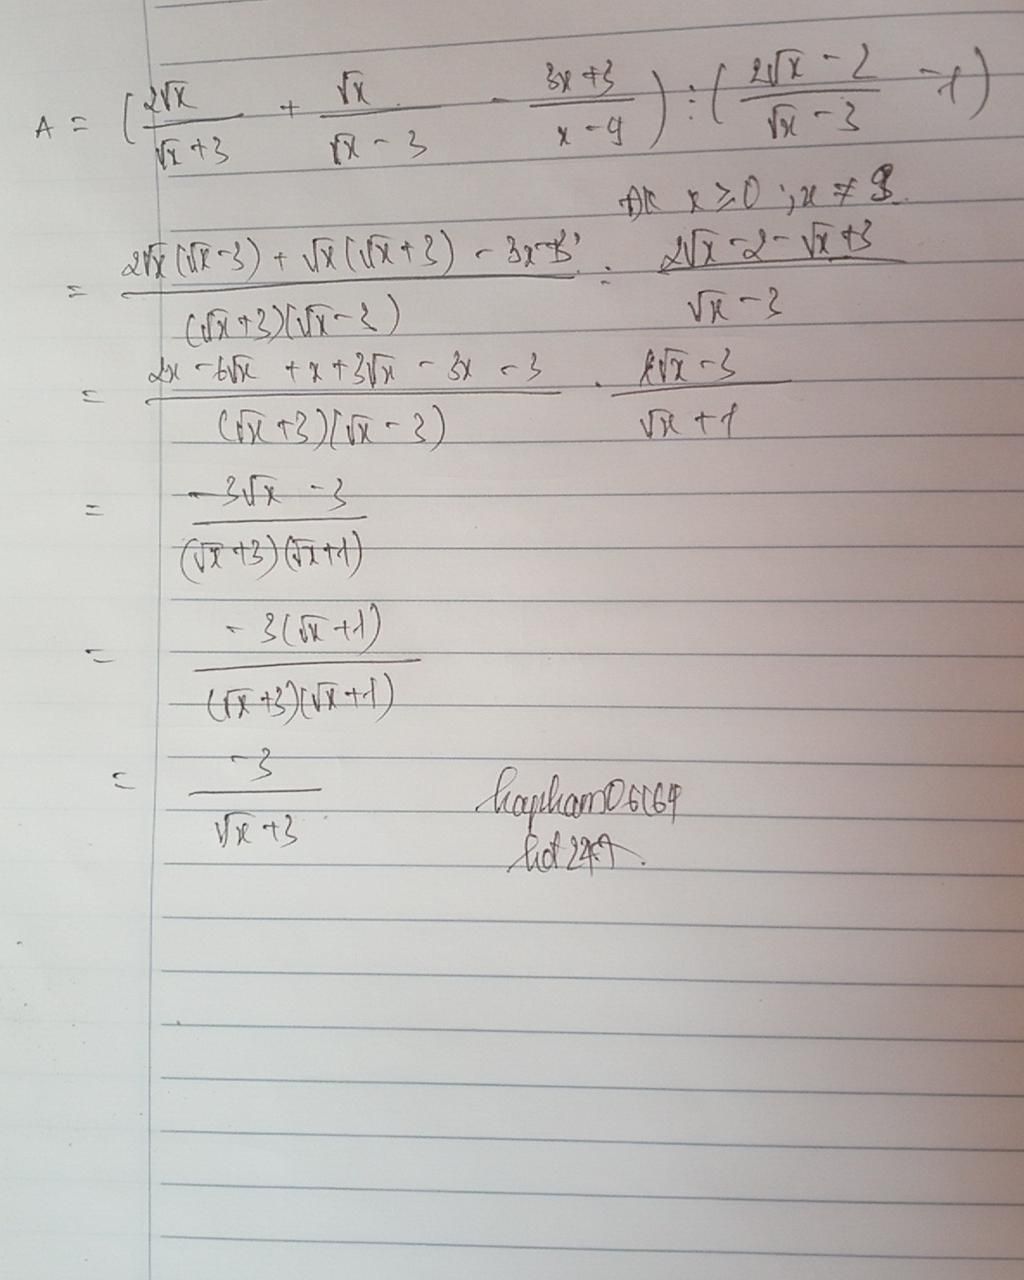 A = (2√x/(√x+3) + √x/(√x-3) - (3x+3)/(x-9)) : ((2√x-2)/(√x-3) - 1)
ĐK x ≥ 0 ; x ≠ 9.
= (2√x(√x-3) + √x(√x+3) - 3x-3)/((√x+3)(√x-3)) : (2√x-2-√x+3)/(√x-3)
= (2x-6√x+x+3√x-3x-3)/((√x+3)(√x-3)) . (√x-3)/(√x+1)
= (-3√x-3)/((√x+3)(√x+1))
= -3(√x+1)/((√x+3)(√x+1))
= -3/(√x+3)